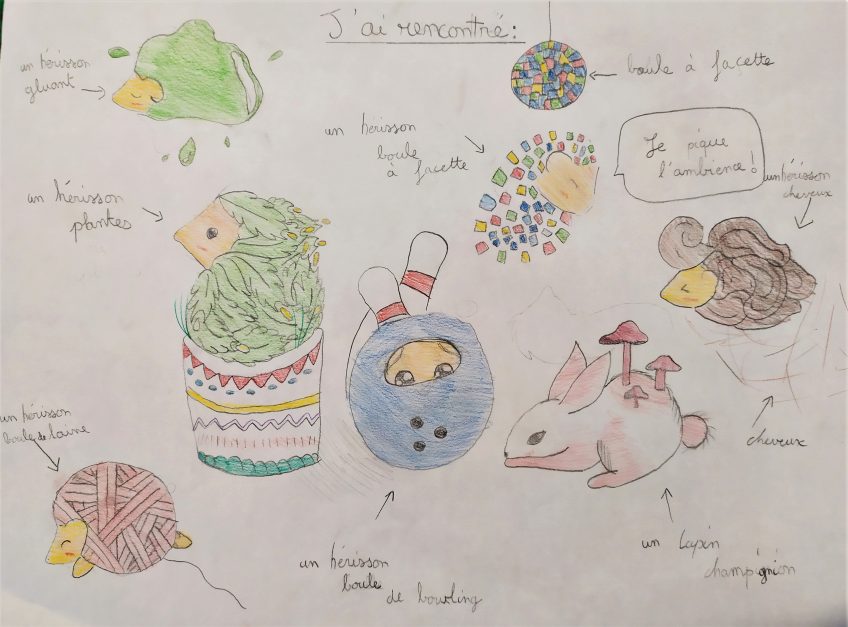 J'ai rencontré :
un hérisson
gluant
boule à facette
un hérisson
boule
à facette
Je pique
l'ambience !
un hérisson
cheveux
un hérisson
plantes
un hérisson
boule de laine
cheveux
un hérisson
boule
de bowling
un lapin
champignion